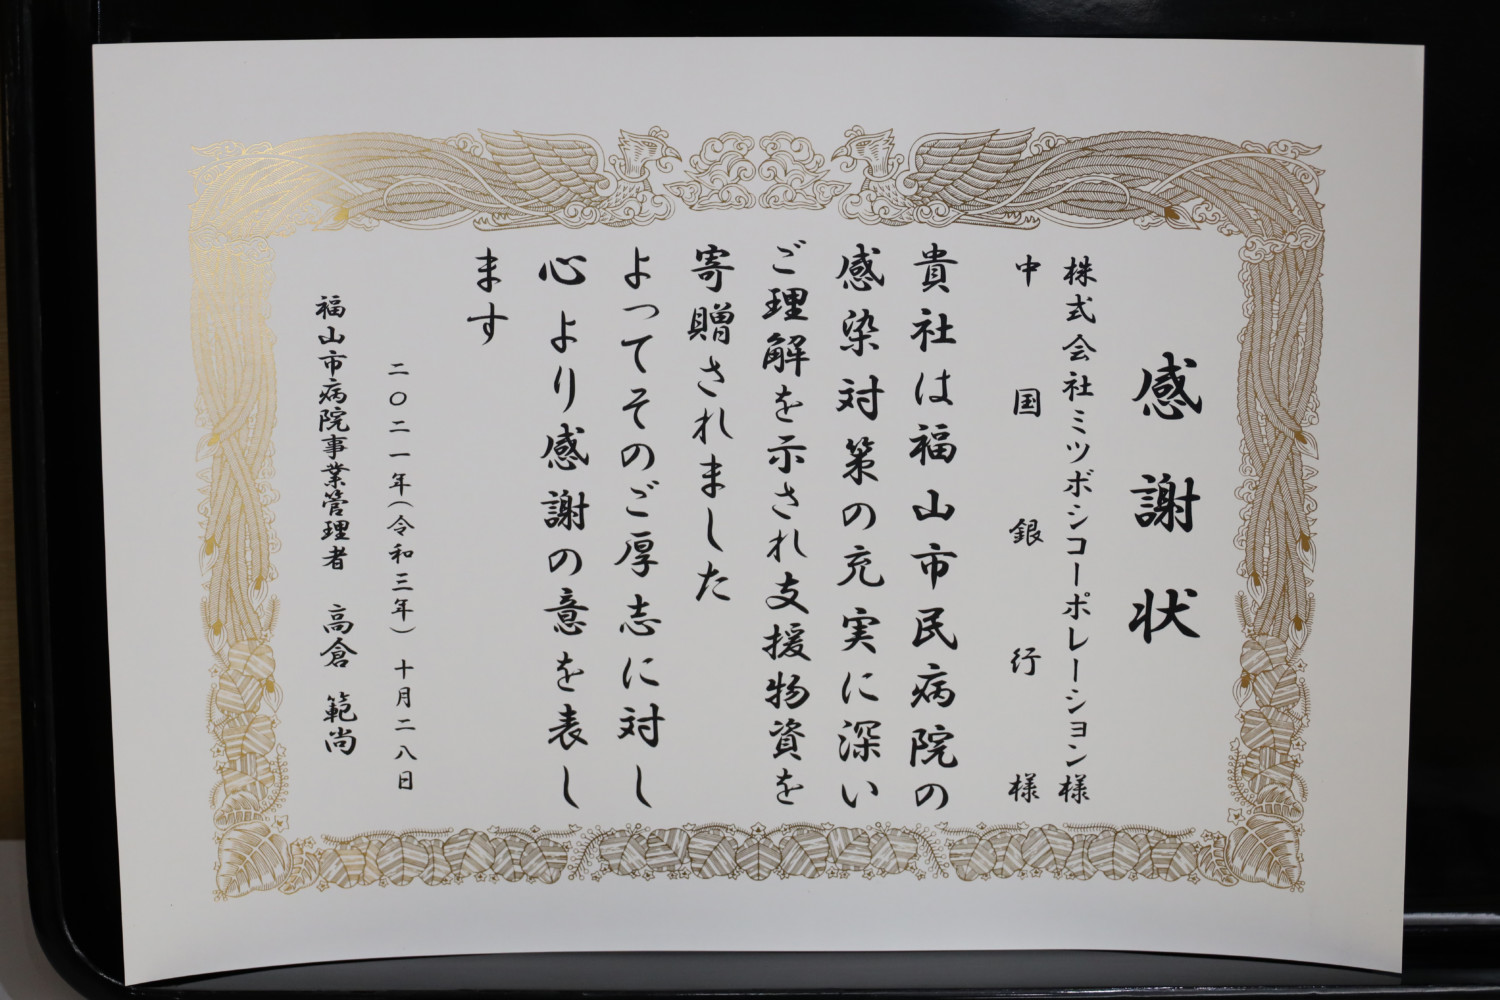 感謝状
株式会社ミツボシコーポレーション様
中国銀行様
貴社は福山市民病院の
感染対策の充実に深い
ご理解を示され支援物資を
寄贈されました
よってそのご厚志に対し
心より感謝の意を表し
ます
二〇二一年(令和三年)十月二八日
福山市病院事業管理者 高倉 範尚